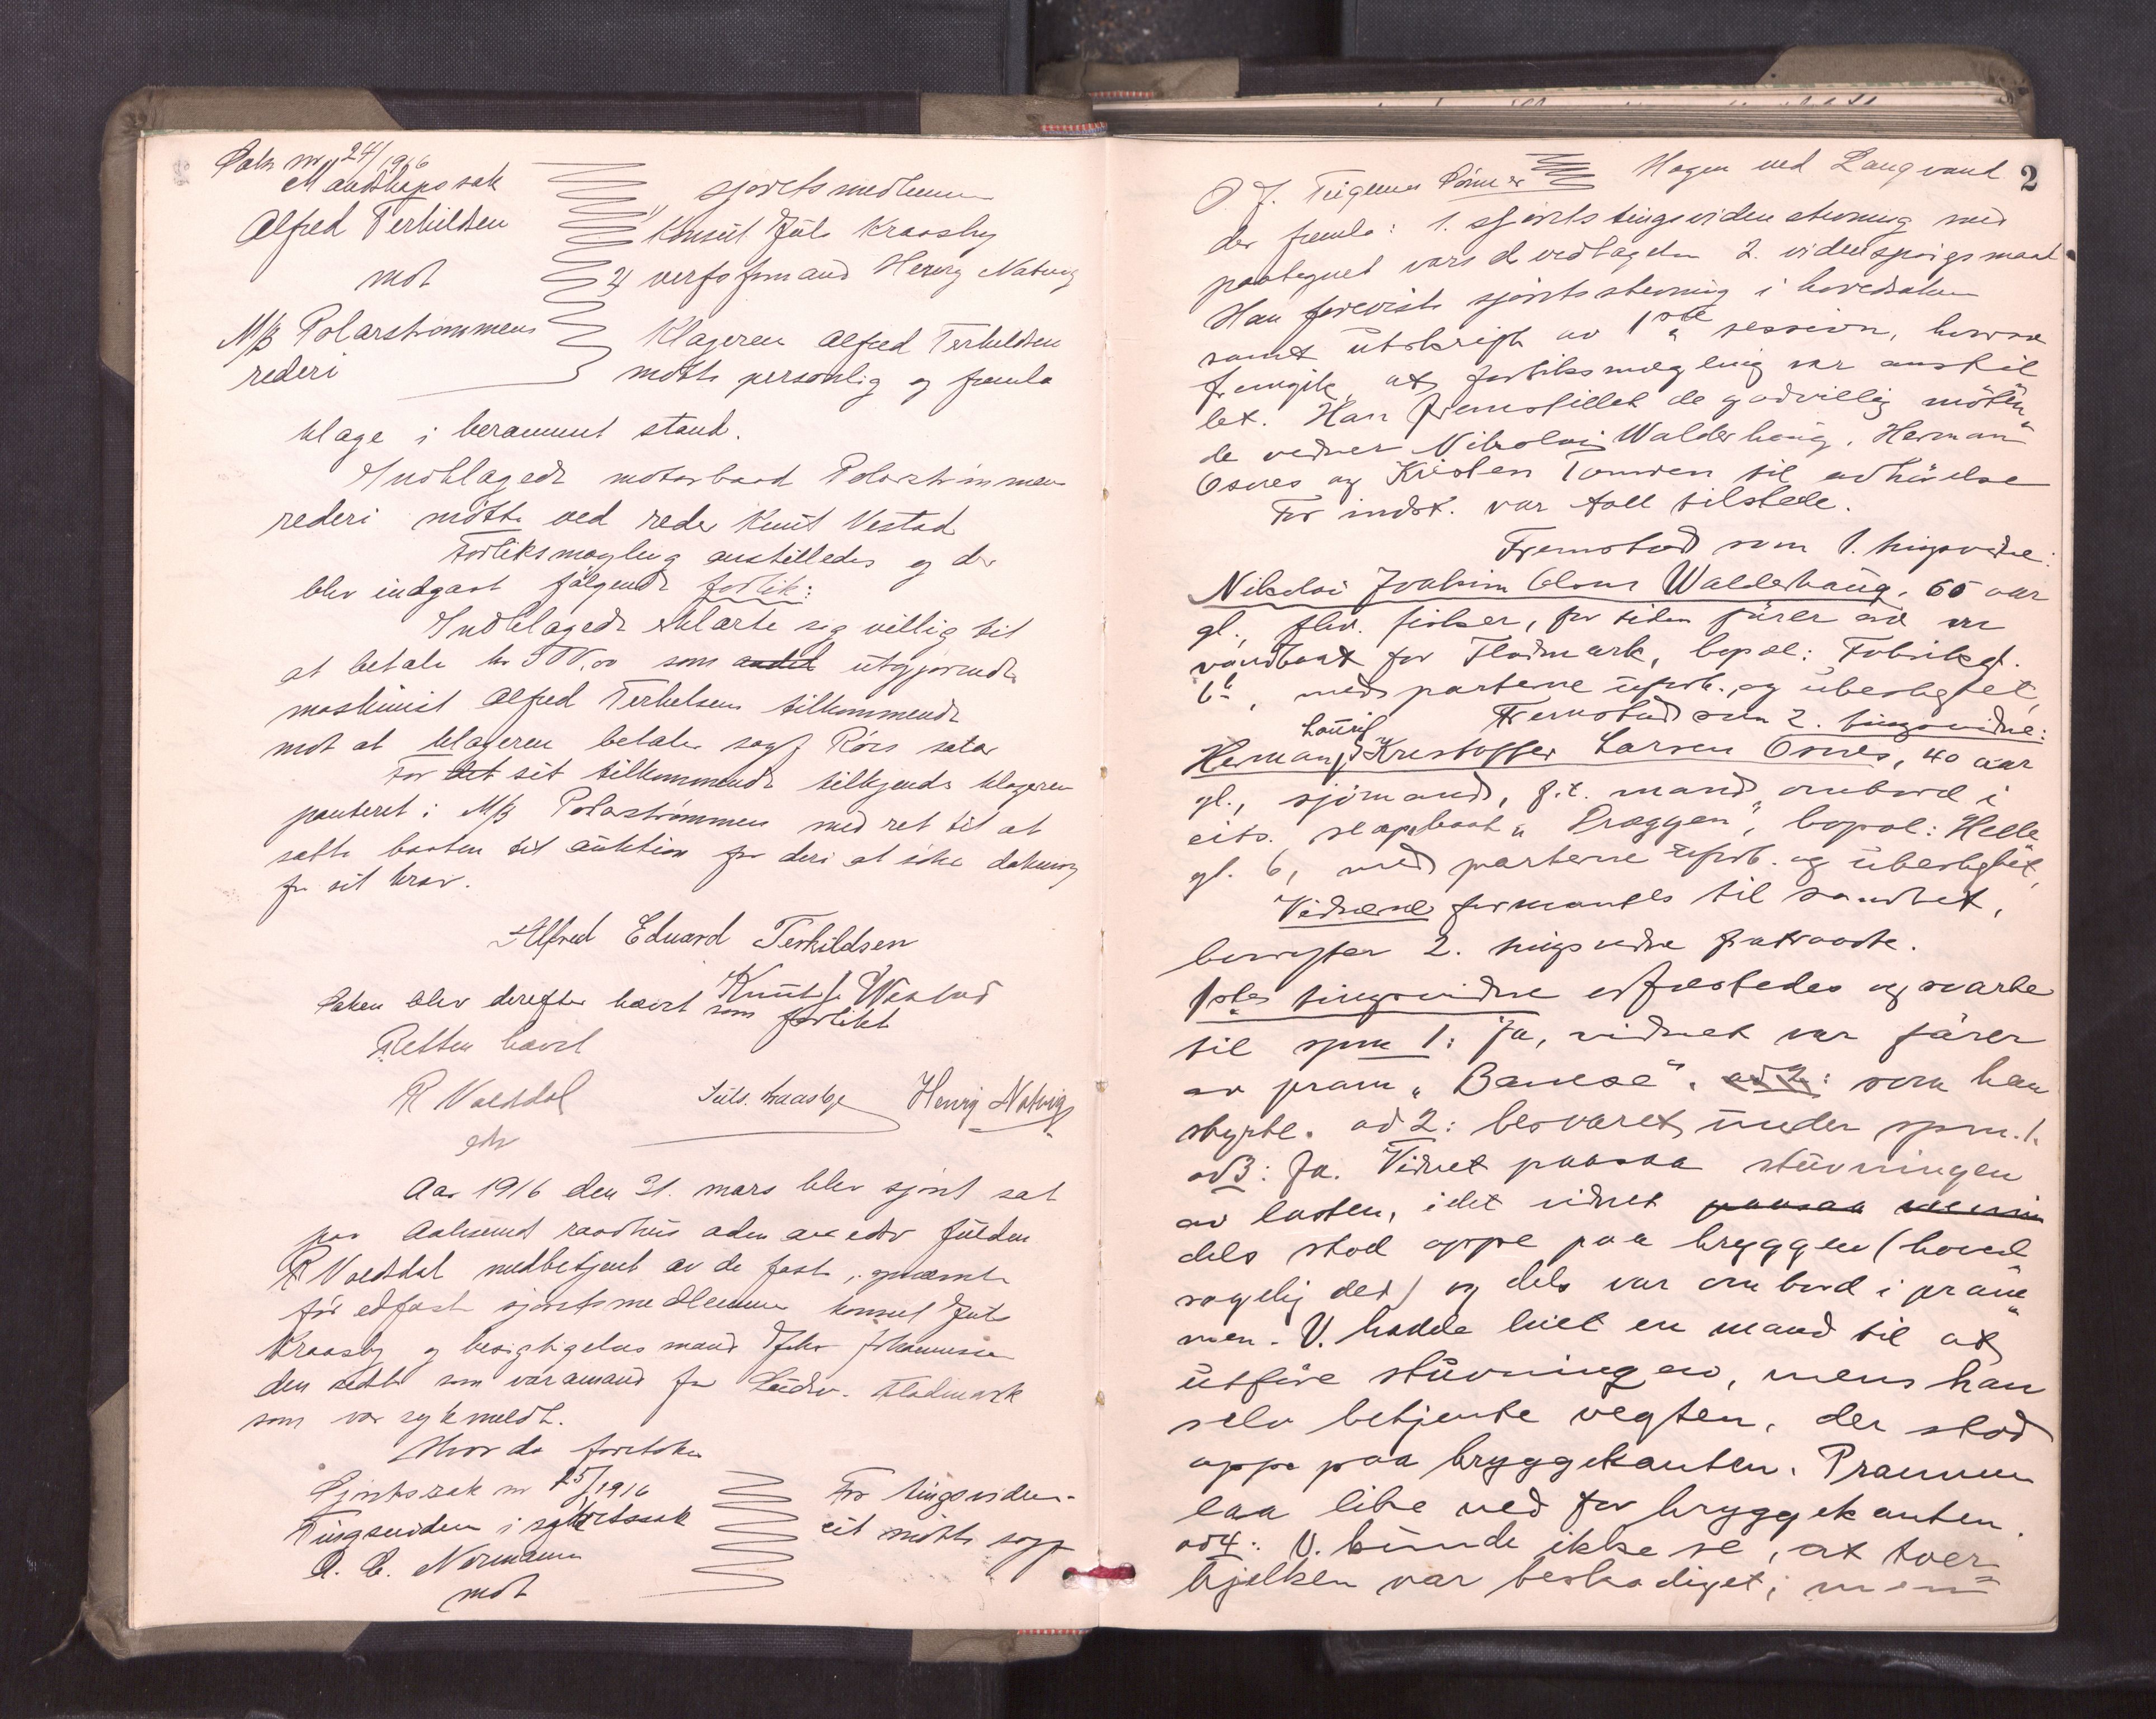 Sak nr 24/1916
Mandskapssak
Alfred Terkildsen
mot
M/B Polarstrømmens
rederi
sjøretsmedlemmer
konsul Juls Kraasby
verfsformand Henry Natvig
Klageren Alfred Terkildsen
møtte personlig og fremla
klage i berammet stand.
Indklagede motorbaad Polarstrømmens
rederi møtte ved reder Knut Vestad
Forliksmægling anstilledes og der
blev indgaat følgende forlik:
Indklagede erklærte sig villig til
at betale kr som utgjørende
maskinist Alfred Terkelsens tilkommende
mot at klageren betaler sagf Rørs salær
For det sit tilkommende tilkjendes klageren
panteret i M/B Polarstrømmen med ret til at
sætte baaten til auktion for deri at søke dækning
for sit krav.
Alfred Eduard Terkildsen
Knut J. Westad
Saken blev derefter hævet som forlikt
Retten hævet
R Voldsdal
edv
Juls. Kraasby
Henry Natvig
Aar 1916 den 31. mars blev sjøret sat
paa Aalesund raadhus av edv fuldm
R Voldsdal medbetjent av de fast opnævnte
før edfæst sjøretsmedlemmer konsul Juls
Kraasby og besigtigelsesmand Johannessen
den sidste som varamand for Ludv. Flodmark
som var sykmeldt.
Hvor da foretokes
Sjøretssak nr 25/1916
Tingsvidne i sjøretssak
O. C. Normann
mot
For tingsviden-
møtte sagf
2
O J. Teigenes Sønner Hagen ved Langvand
der fremla: 1. sjørets tingsvidnestevning med
paategnet varsel vedtagelse 2. vidnespørgsmaal
Han foreviste sjøretsstevning i hovedsaken
samt utskrift av 1ste session, hvorav
fremgik, at forliksmægling var anstil
let. Han fremstillet de godvillig møten
de vidner Nikolai Walderhaug, Herman
Osnes og Kristen Tomren til avhørelse
For indst. var Aall tilstede.
Fremstod som 1. tingsvidne:
Nikolai Joakim Olsen Walderhaug, 65 aar
gl., fhv. fisker, for tiden fører av en
vandbaat for Flodmark, bopæl: Fabrikgt.
6b, med parterne uforb. og ubeslegtet,
Fremstod som 2. tingsvidne:
Herman Laurits Kristoffer Larsen Osnes, 40 aar
gl., sjømand, f.t. mand ombord i
eits. slæpebaat "Draggen", bopæl: Helle
gt. 6, med parterne uforb. og ubeslegtet,
Vidnerne formantes til sandhet,
hvorefter 2. tingsvidne fratraadte.
1stes tingsvidne edfæstedes og svarte
til spm 1: Ja, vidnet var fører
av pram "Bamse". ad 2: som han
styrte. ad 2: besvaret under spm. 1.
ad 3: Ja. Vidnet paasaa stuvningen
av lasten, idet vidnet paasaa
dels stod oppe paa bryggen (hoved
sagelig det) og dels var ombord i pram
men. V. hadde leiet en mand til at
utføre stuvningen, mens han
selv betjente vegten, der stod
oppe paa bryggekanten. Prammen
laa like ved for bryggekanten.
ad 4: V. kunde ikke se, at tver=
bjelken var beskadiget; men